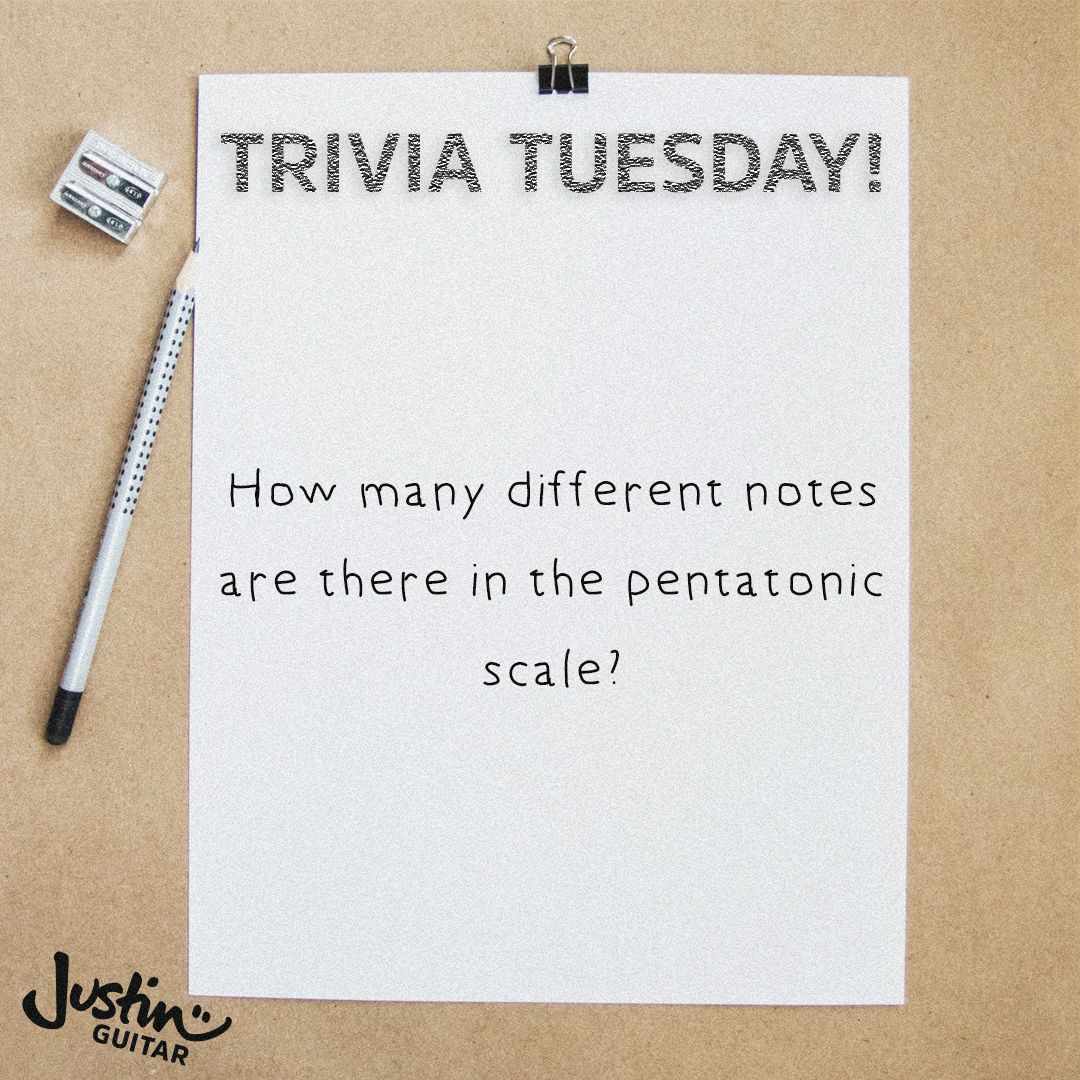 TRIVIA TUESDAY!
How many different notes
are there in the pentatonic
scale?
Justin
GUITAR